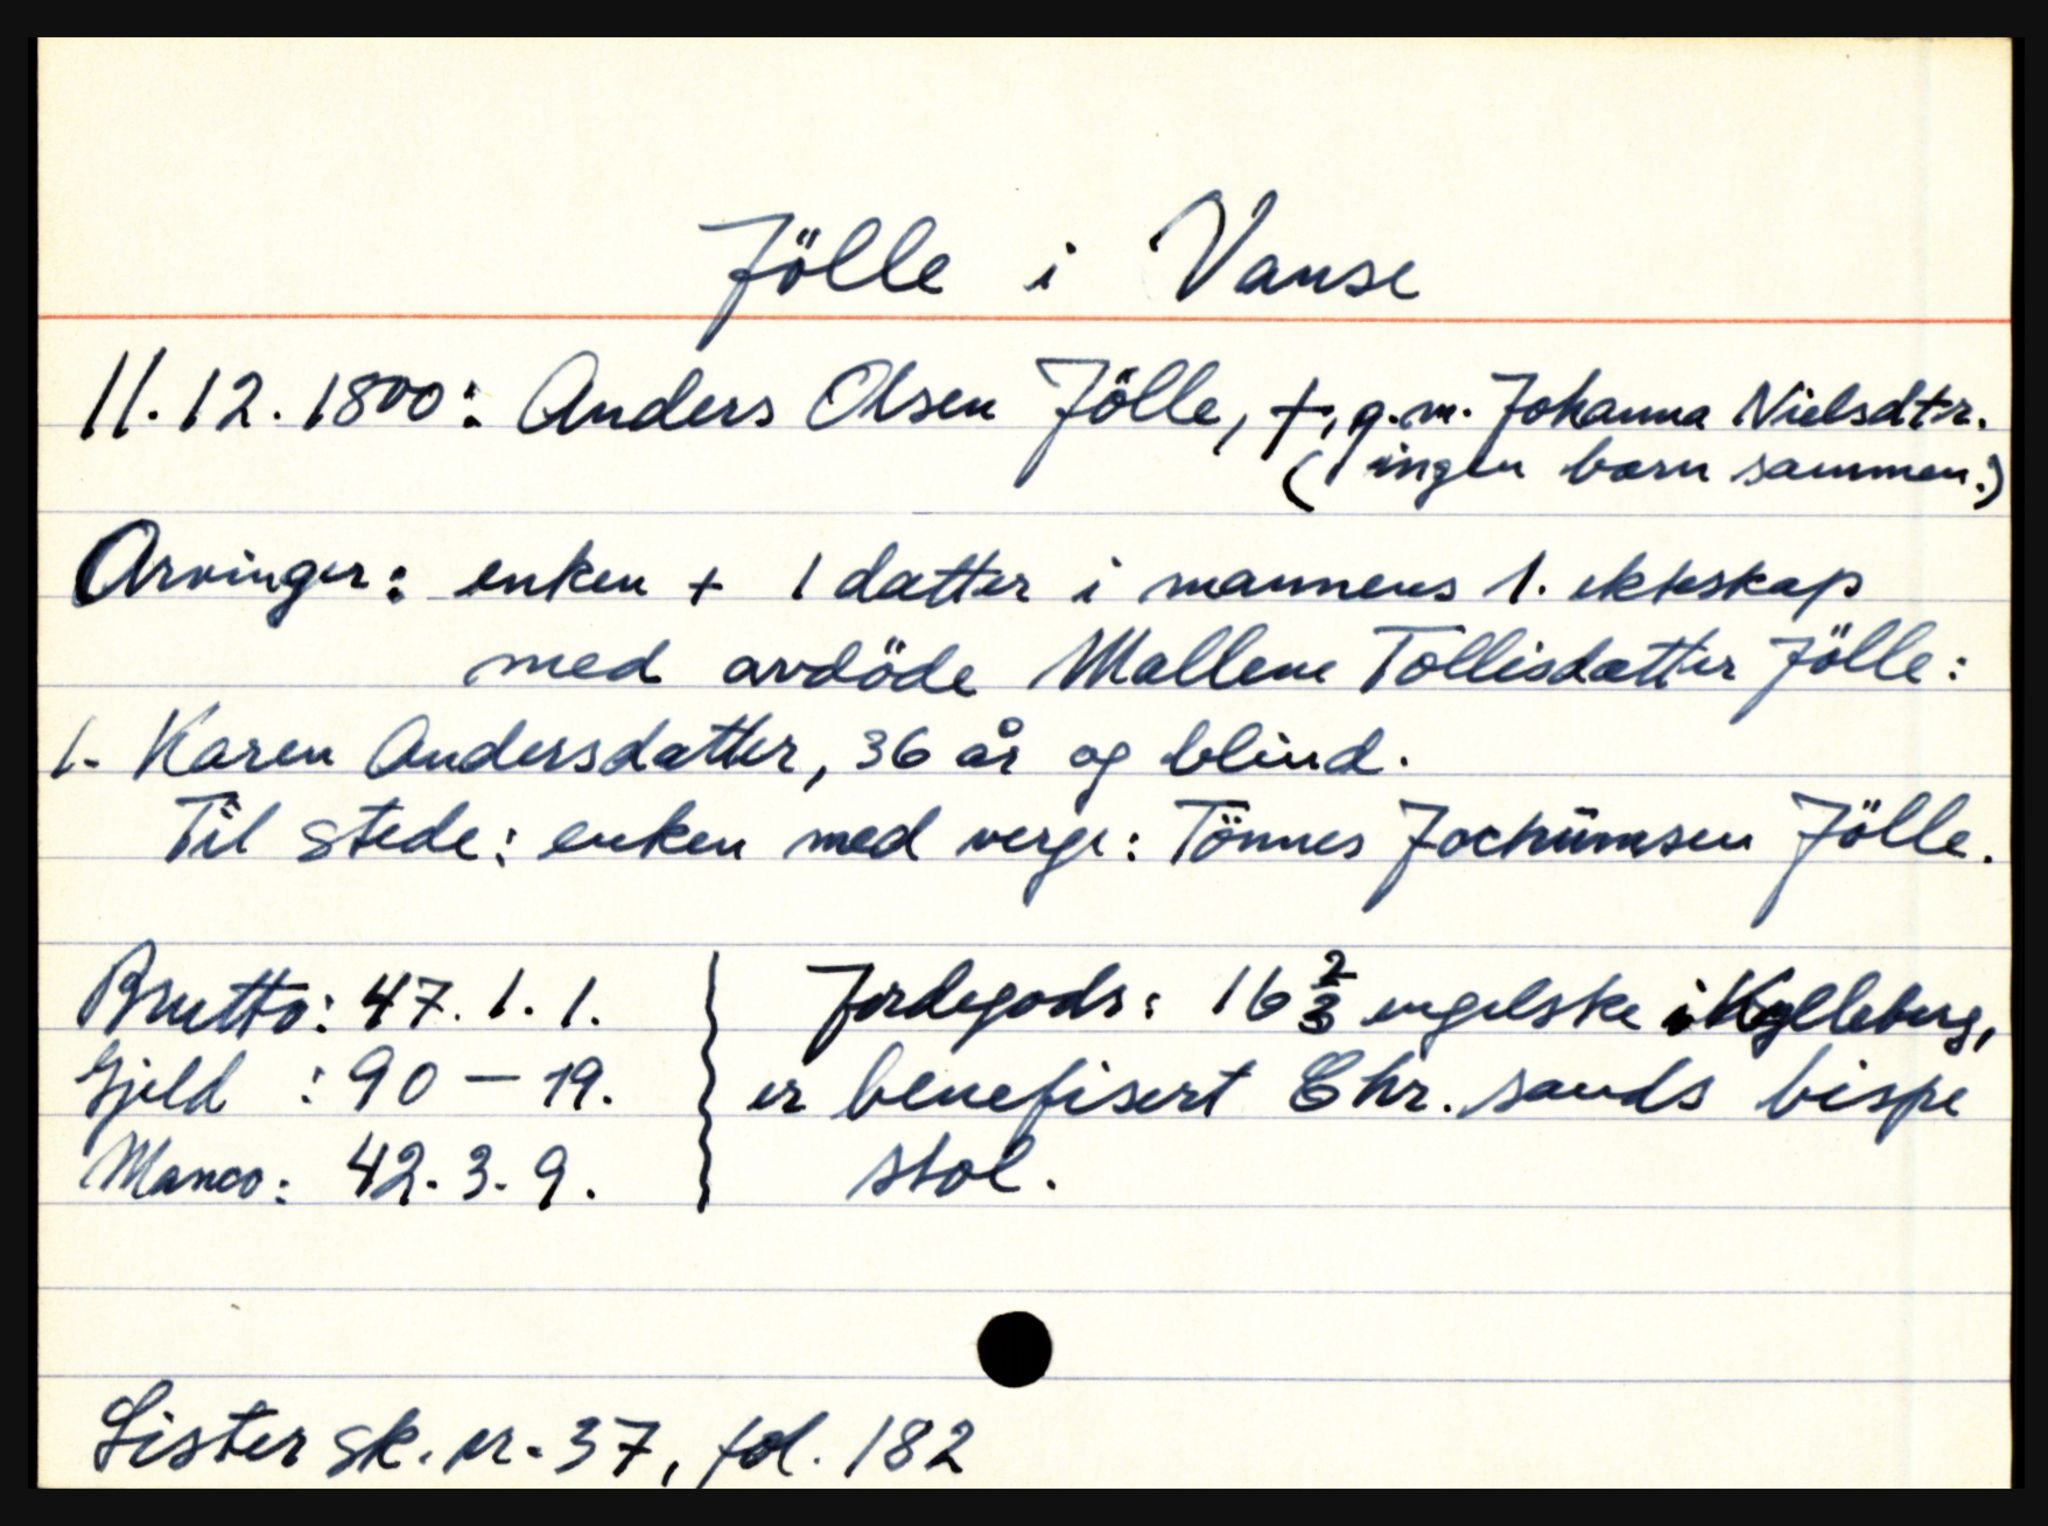 Jölle i Vanse
11.12.1800: Anders Olsen Jölle, †, g.m. Johanna Nielsdtr.
(ingen barn sammen.)
Arvinger: enken + 1 datter i mannens 1. ekteskap
med avdöde Mallene Tollisdatter Jölle:
1. Karen Andersdatter, 36 år og blind.
Til stede: enken med verge: Tönnes Jochumsen Jölle.
Brutto: 47. 1. 1.
Gjeld : 90 — 19.
Manco: 42. 3. 9.
Jordegods: 16 2/3 engelske i Kylleberg,
er benefisert Chr. sands bispe
stol.
Lister sk. nr. 37, fol. 182